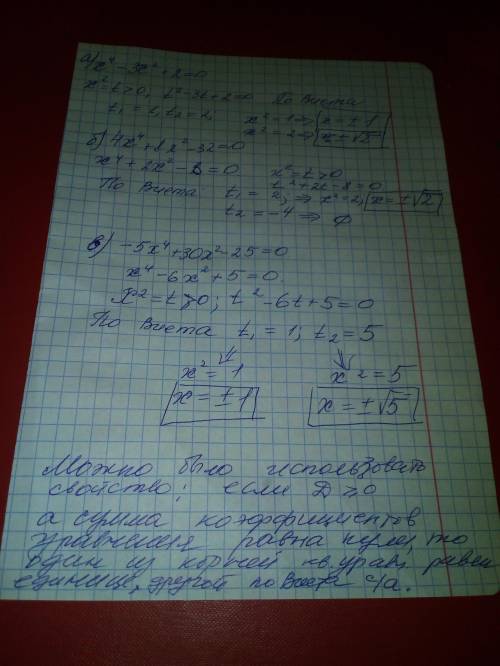 а) x⁴ - 3x² + 2 = 0
x² = t > 0, t² - 3t + 2 = 0 По Виета
t₁ = 1, t₂ = 2, x² = 1 ⇒ x = ± 1
x² = 2 ⇒ x = ± √2
б) 4x⁴ + 8x² - 32 = 0
x⁴ + 2x² - 8 = 0. x² = t > 0
t² + 2t - 8 = 0
По Виета t₁ = 2, ⇒ x² = 2, x = ± √2
t₂ = -4 ⇒ ∅
в) -5x⁴ + 30x² - 25 = 0
x⁴ - 6x² + 5 = 0.
x² = t > 0; t² - 6t + 5 = 0
По Виета t₁ = 1; t₂ = 5
⇓ ⇓
x² = 1 x² = 5
x = ± 1 x = ± √5
Можно было использовать
свойство: если D ≥ 0
а сумма коэффициентов
уравнения равна нулю, то
один из корней кв. урав. равен
единице, другой по Виета c/a.